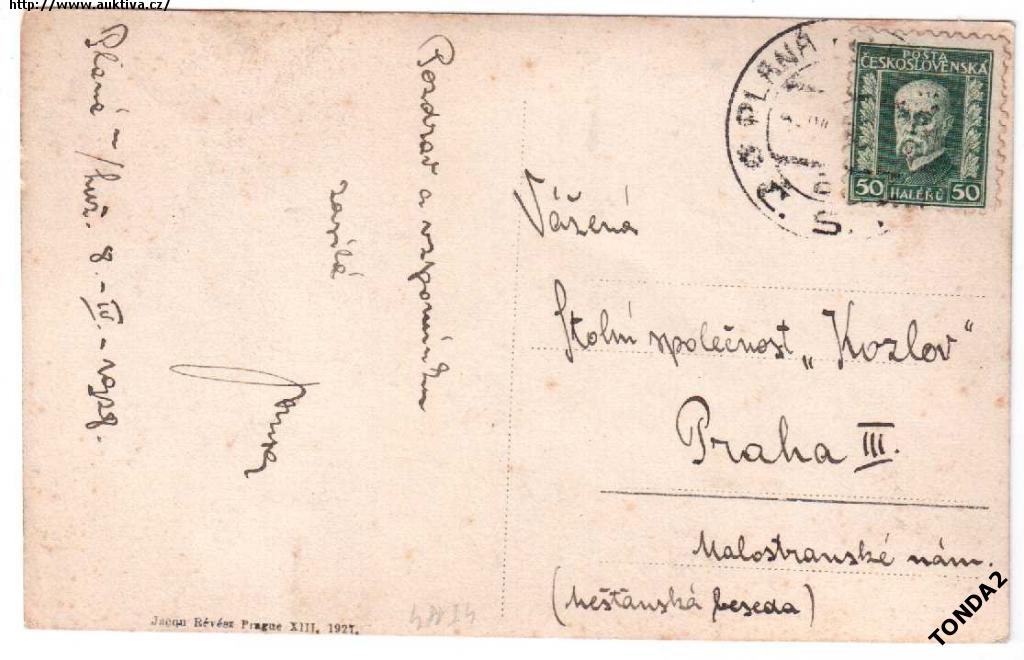 http://www.auktiva.cz/
Planá - /Luž. 8. - IV. - 1928.
Pozdrav a vzpomínku
zasílá
PLANÁ
POŠTA
ČESKOSLOVENSKÁ
50 HALÉŘŮ 50
Vážená
Stolní společnost „Kozlov“
Praha III.
Malostranské nám.
(Měšťanská beseda)
Jacqu Révész Prague XIII, 1927.
TONDA2